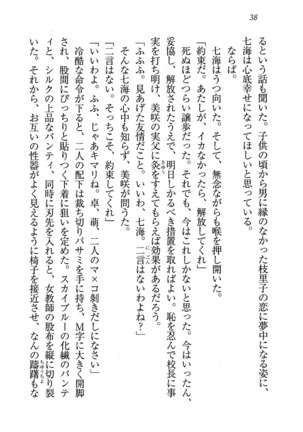 38
るという話も聞いた。子供の頃から男に縁のなかった枝里子の恋に夢中になる姿に、
七海は心底幸せになってほしいと思っている。
ならば。
「約束だ。あたしが、イカなかったら、解放してくれ」
七海はうつ向いた。そして、無念ながらも喉を押し開いた。
死ぬほどつらい譲歩だった。でも、今はこれしかないと思った。今はいったん、
妥協し、解放されたうえで、明日しかるべき措置を取ればよい。恥を忍んで校長に事
実を打ち明け、美咲の実父に灸をすえてもらえば効果があるだろう。
「ふふふ。見あげた友情だこと。いいわ、七海。二言はないわよね?」
そんな七海の心中も知らず、美咲が問うた。
「二言はない。そっちこそ、約束してくれ」
「いいわよ。ふふ、じゃあキマリね。卓、萌、二人のマ×コ剥きだしになさい」
冷酷な命令が下ると、二人の配下は裁ち切りバサミを手に持ち、M字に大きく開脚
され、股間にぴっちりと貼りつく下着に狙いを定めた。スカイブルーの化繊のパンテ
ィと、シルクの上品なパンティ、同時に刃先を入れると、女教師の股布を縦に切り裂
いた。それから、お互いの性器がよく見えるように椅子を接近させ、なんの躊躇もな